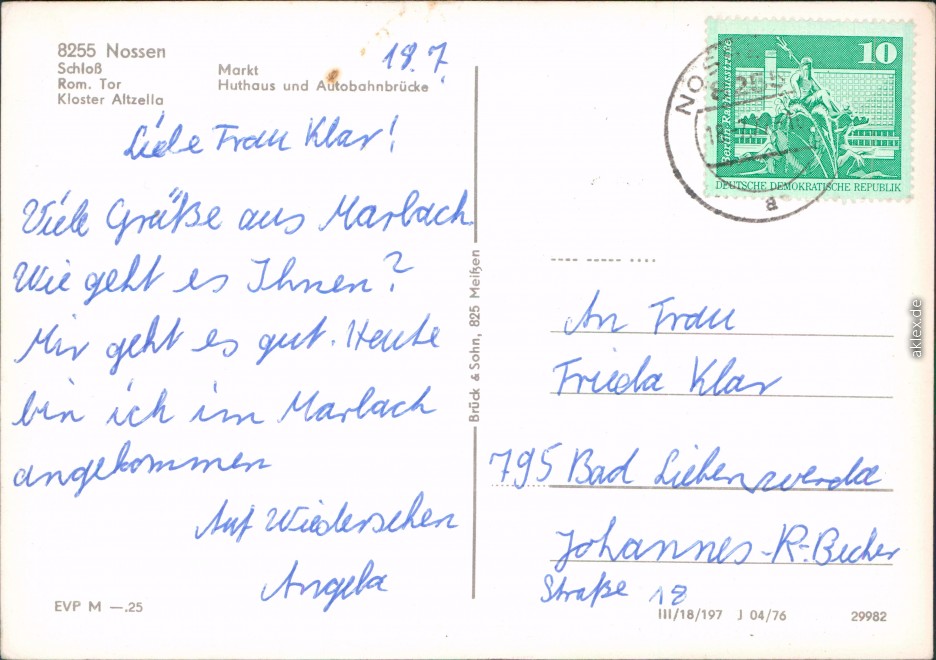 8255 Nossen
Schloß
Rom. Tor
Kloster Altzella
Markt
Huthaus und Autobahnbrücke
18.7.
Liebe Frau Klar!
Viele Grüße aus Marbach.
Wie geht es Ihnen?
Mir geht es gut. Heute
bin ich im Marbach
angekommen
Auf Wiedersehen
Angela
EVP M —.25
Brück & Sohn, 825 Meißen
10
Berlin-Rathausstraße
DEUTSCHE DEMOKRATISCHE REPUBLIK
8255
B
An Frau
Frieda Klar
795 Bad Liebenwerda
Johannes-R.-Becher
Straße 18
III/18/197 J 04/76
29982
aklex.de